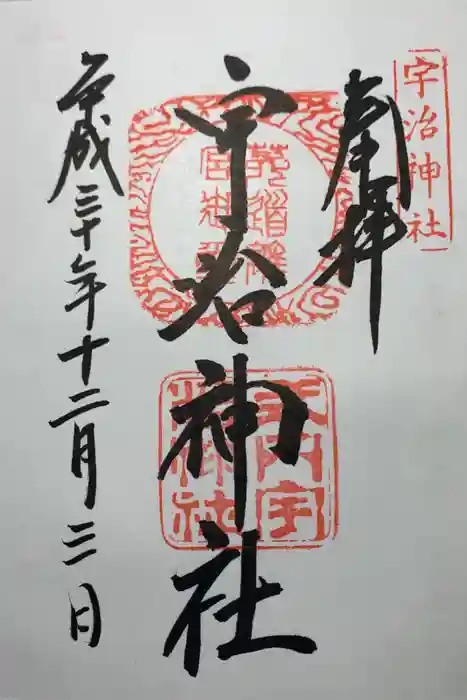 宇治神社
奉拝
宇治神社
平成三十年十二月三日